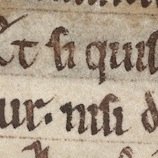 Et si quis
ur. nisi d